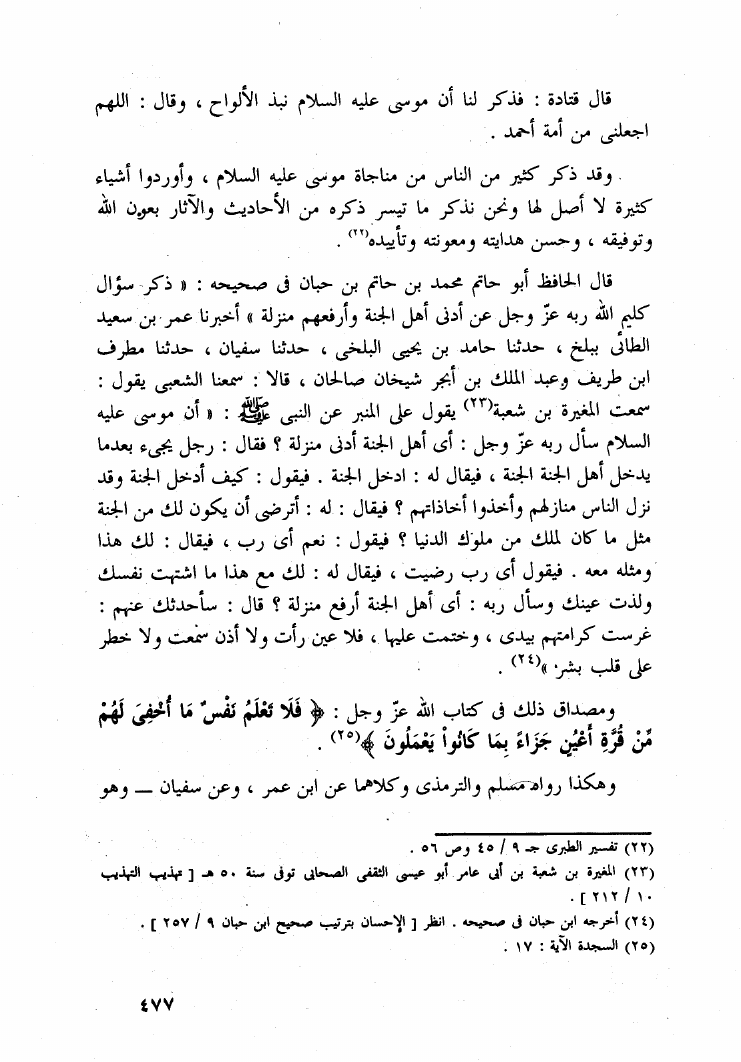 قال قتادة : فذكر لنا أن موسى عليه السلام نبذ الألواح ، وقال : اللهم
اجعلنى من أمة أحمد .
وقد ذكر كثير من الناس من مناجاة موسى عليه السلام ، وأوردوا أشياء
كثيرة لا أصل لها ونحن نذكر ما تيسر ذكره من الأحاديث والآثار بعون الله
وتوفيقه ، وحسن هدايته ومعونته وتأييده(٢٢) .
قال الحافظ أبو حاتم محمد بن حاتم بن حبان فى صحيحه : « ذكر سؤال
كليم الله ربه عزّ وجل عن أدنى أهل الجنة وأرفعهم منزلة » أخبرنا عمر بن سعيد
الطائى ببلخ ، حدثنا حامد بن يحيى البلخى ، حدثنا سفيان ، حدثنا مطرف
ابن طريف وعبد الملك بن أبجر شيخان صالحان ، قالا : سمعنا الشعبى يقول :
سمعت المغيرة بن شعبة(٢٣) يقول على المنبر عن النبى ﷺ : « أن موسى عليه
السلام سأل ربه عزّ وجل : أى أهل الجنة أدنى منزلة ؟ فقال : رجل يجىء بعدما
يدخل أهل الجنة الجنة ، فيقال له : ادخل الجنة . فيقول : كيف أدخل الجنة وقد
نزل الناس منازلهم وأخذوا أخاذاتهم ؟ فيقال : له : أترضى أن يكون لك من الجنة
مثل ما كان لملك من ملوك الدنيا ؟ فيقول : نعم أى رب ، فيقال : لك هذا
ومثله معه . فيقول أى رب رضيت ، فيقال له : لك مع هذا ما اشتهت نفسك
ولذت عينك وسأل ربه : أى أهل الجنة أرفع منزلة ؟ قال : سأحدثك عنهم :
غرست كرامتهم بيدى ، وختمت عليها ، فلا عين رأت ولا أذن سمعت ولا خطر
على قلب بشر »(٢٤) .
ومصداق ذلك فى كتاب الله عزّ وجل : ﴿ فَلَا تَعْلَمُ نَفْسٌ مَا أُخْفِىَ لَهُمْ
مِّنْ قُرَّةِ أَعْيُنٍ جَزَاءً بِمَا كَانُواْ يَعْمَلُونَ ﴾(٢٥) .
وهكذا رواه مسلم والترمذى وكلاهما عن ابن عمر ، وعن سفيان ــ وهو
(٢٢) تفسير الطبرى جـ ٩ / ٤٥ وص ٥٦ .
(٢٣) المغيرة بن شعبة بن أبى عامر أبو عيسى الثقفى الصحابى توفى سنة ٥٠ هـ [ تهذيب التهذيب
١٠ / ٢١٢ ] .
(٢٤) أخرجه ابن حبان فى صحيحه . انظر [ الإحسان بترتيب صحيح ابن حبان ٩ / ٢٥٧ ] .
(٢٥) السجدة الآية : ١٧ .
٤٧٧